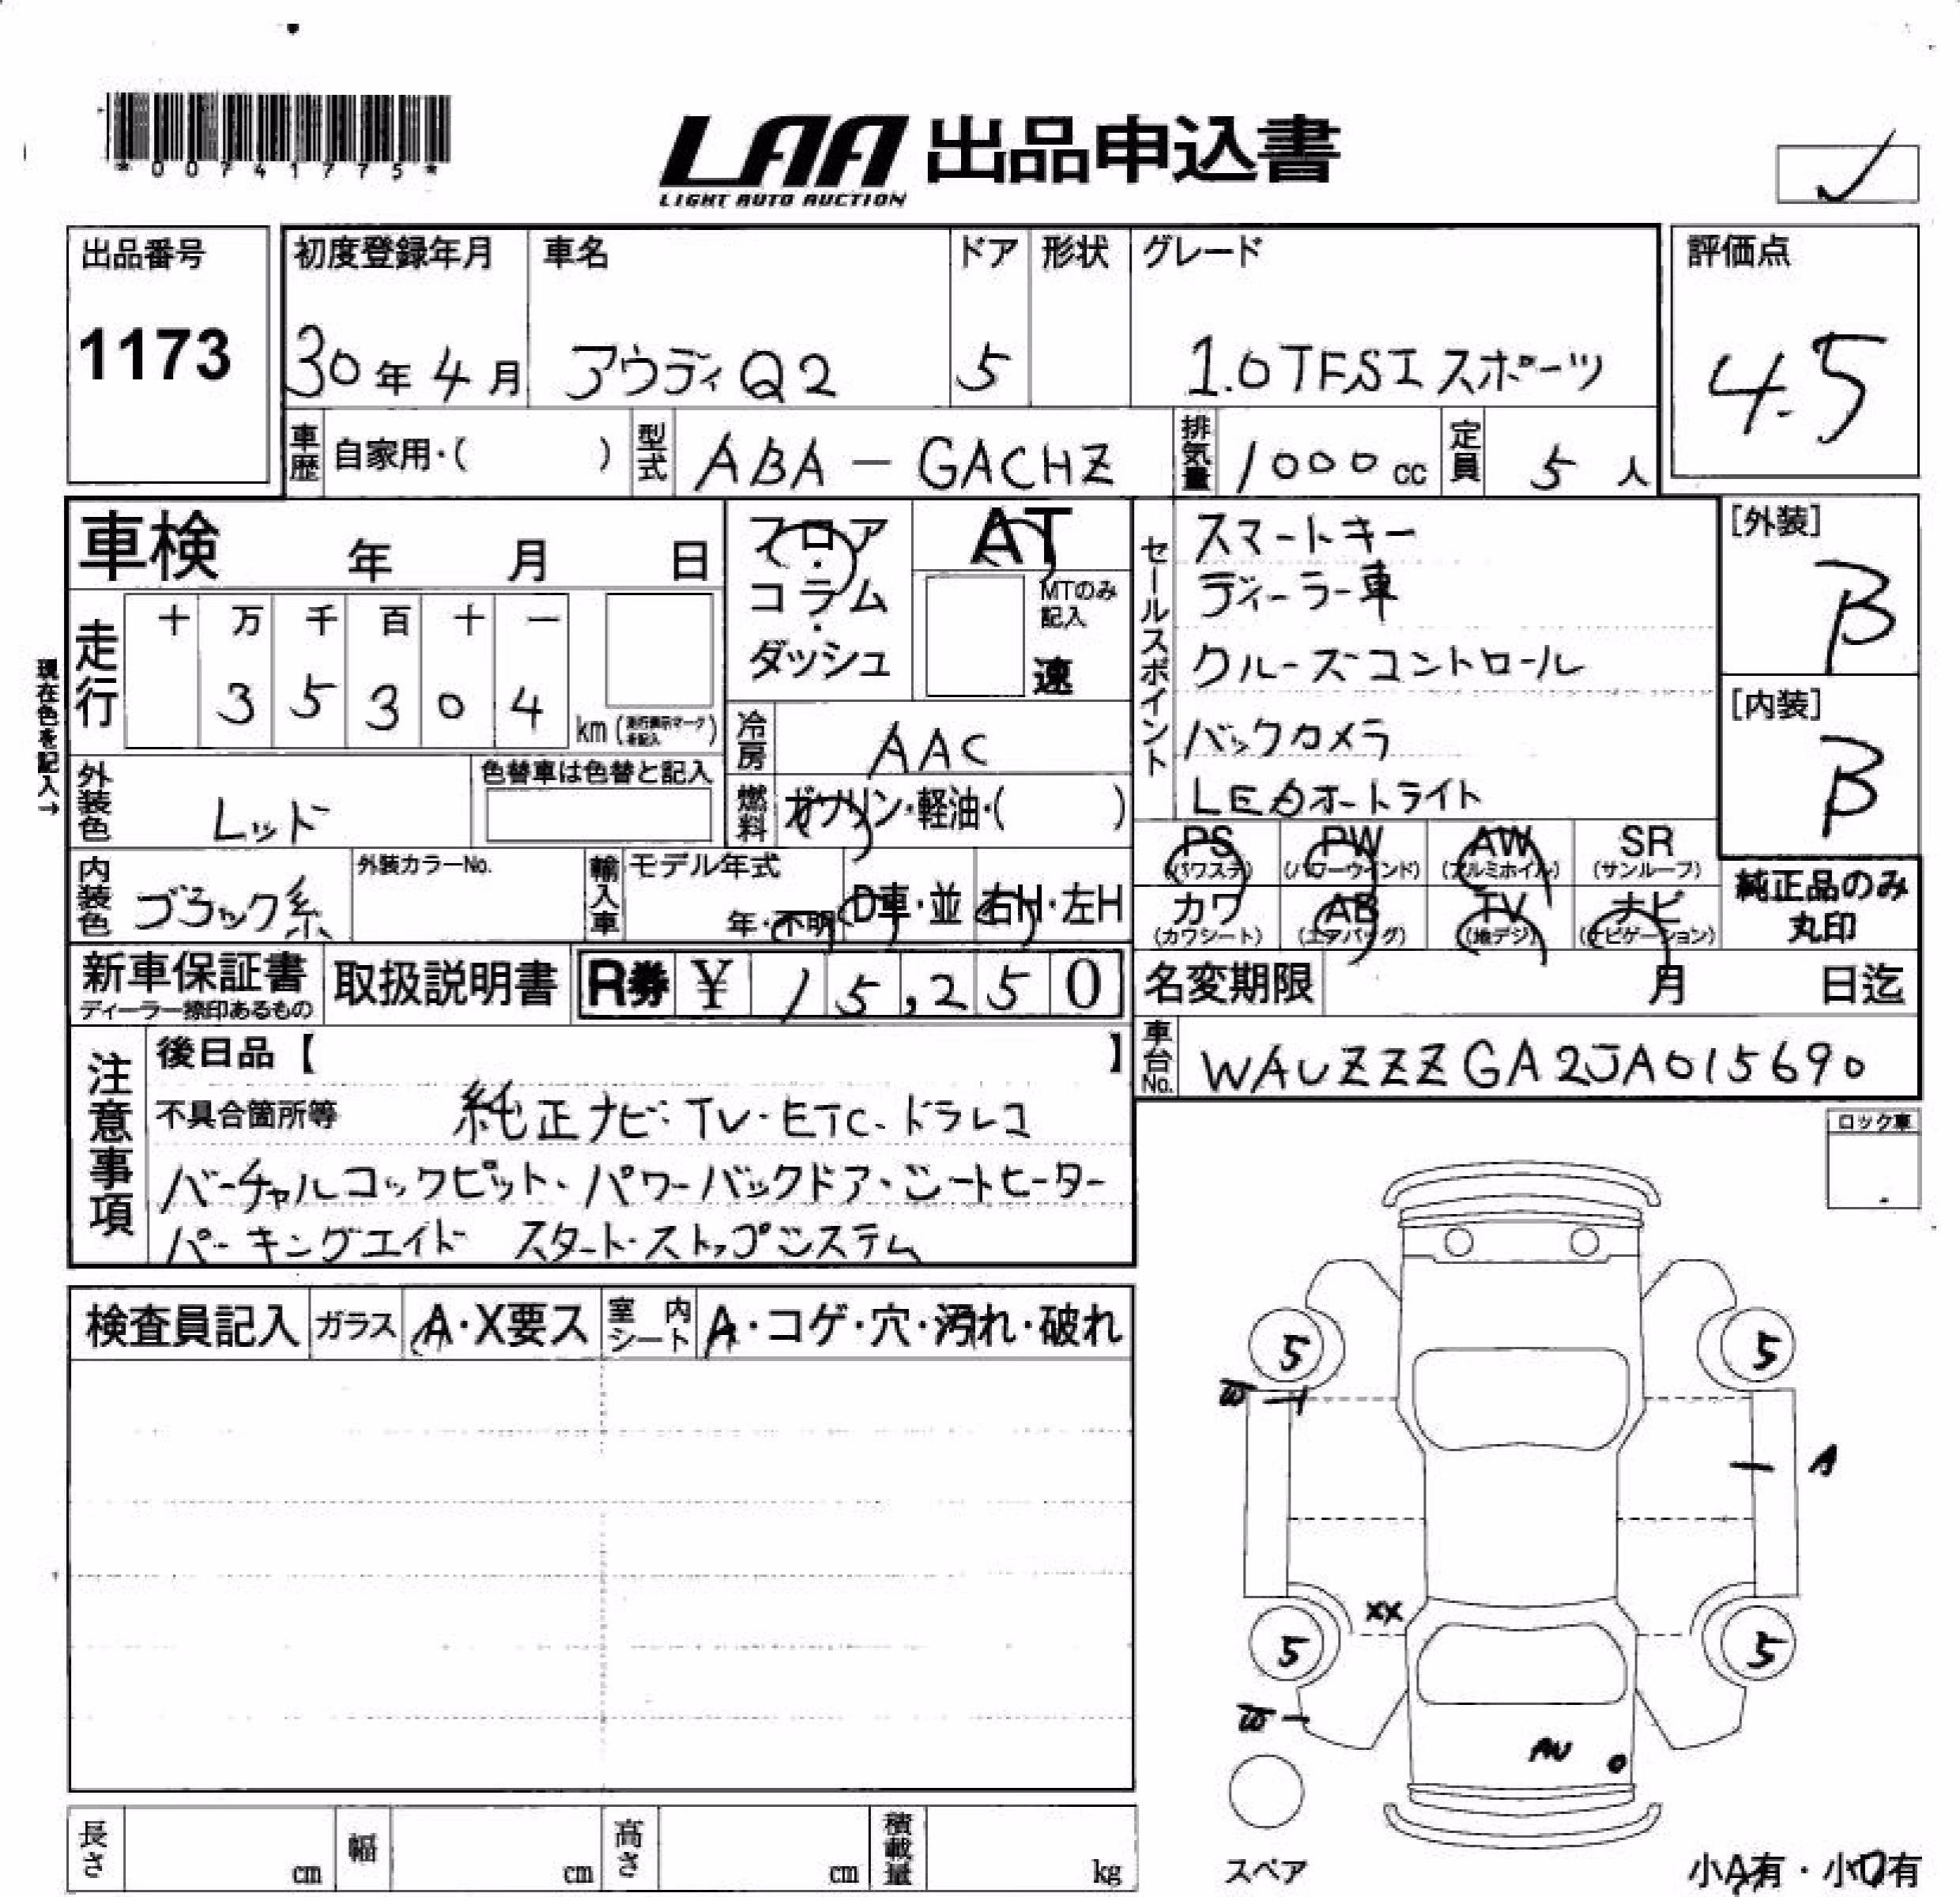 *00741775*
LAA 出品申込書
LIGHT AUTO AUCTION
出品番号 初度登録年月 車名 ドア 形状 グレード 評価点
1173 30年4月 アウディQ2 5 1.0TFSIスポーツ 4.5
車歴 自家用・( ) 型式 ABA-GACHZ 排気量 1000cc 定員 5人
車検 年 月 日
フロア・コラム・ダッシュ
AT
MTのみ記入
速
セールスポイント
スマートキー
ディーラー車
クルーズコントロール
バックカメラ
LEDオートライト
[外装]
B
[内装]
B
現在色を記入→
走行 十 万 千 百 十 一
3 5 3 0 4 km
冷房 AAC
燃料 ガソリン・軽油・( )
外装色 レッド
色替車は色替と記入
内装色 ブラック系
外装カラーNo.
輸入車 モデル年式
年・不明 D車・並 右H・左H
PS (パワステ) PW (パワーウインド) AW (アルミホイル) SR (サンルーフ)
カワ (カワシート) AB (エアバッグ) TV (地デジ) ナビ (ナビゲーション)
純正品のみ
丸印
新車保証書
ディーラー捺印あるもの
取扱説明書
R券 ¥ 15,250
名変期限 月 日迄
車台No. WAUZZZGA2JA015690
注意事項
後日品【 】
不具合箇所等 純正ナビ・TV・ETC・ドラレコ
バーチャルコックピット・パワーバックドア・シートヒーター
パーキングエイド スタート・ストップシステム
ロック車
検査員記入 ガラス A・X要ス 室内シート A・コゲ・穴・汚れ・破れ
5 5
W
A
XX
5 5
W
AU
スペア
小A有・小U有
長さ cm 幅 cm 高さ cm 積載量 kg